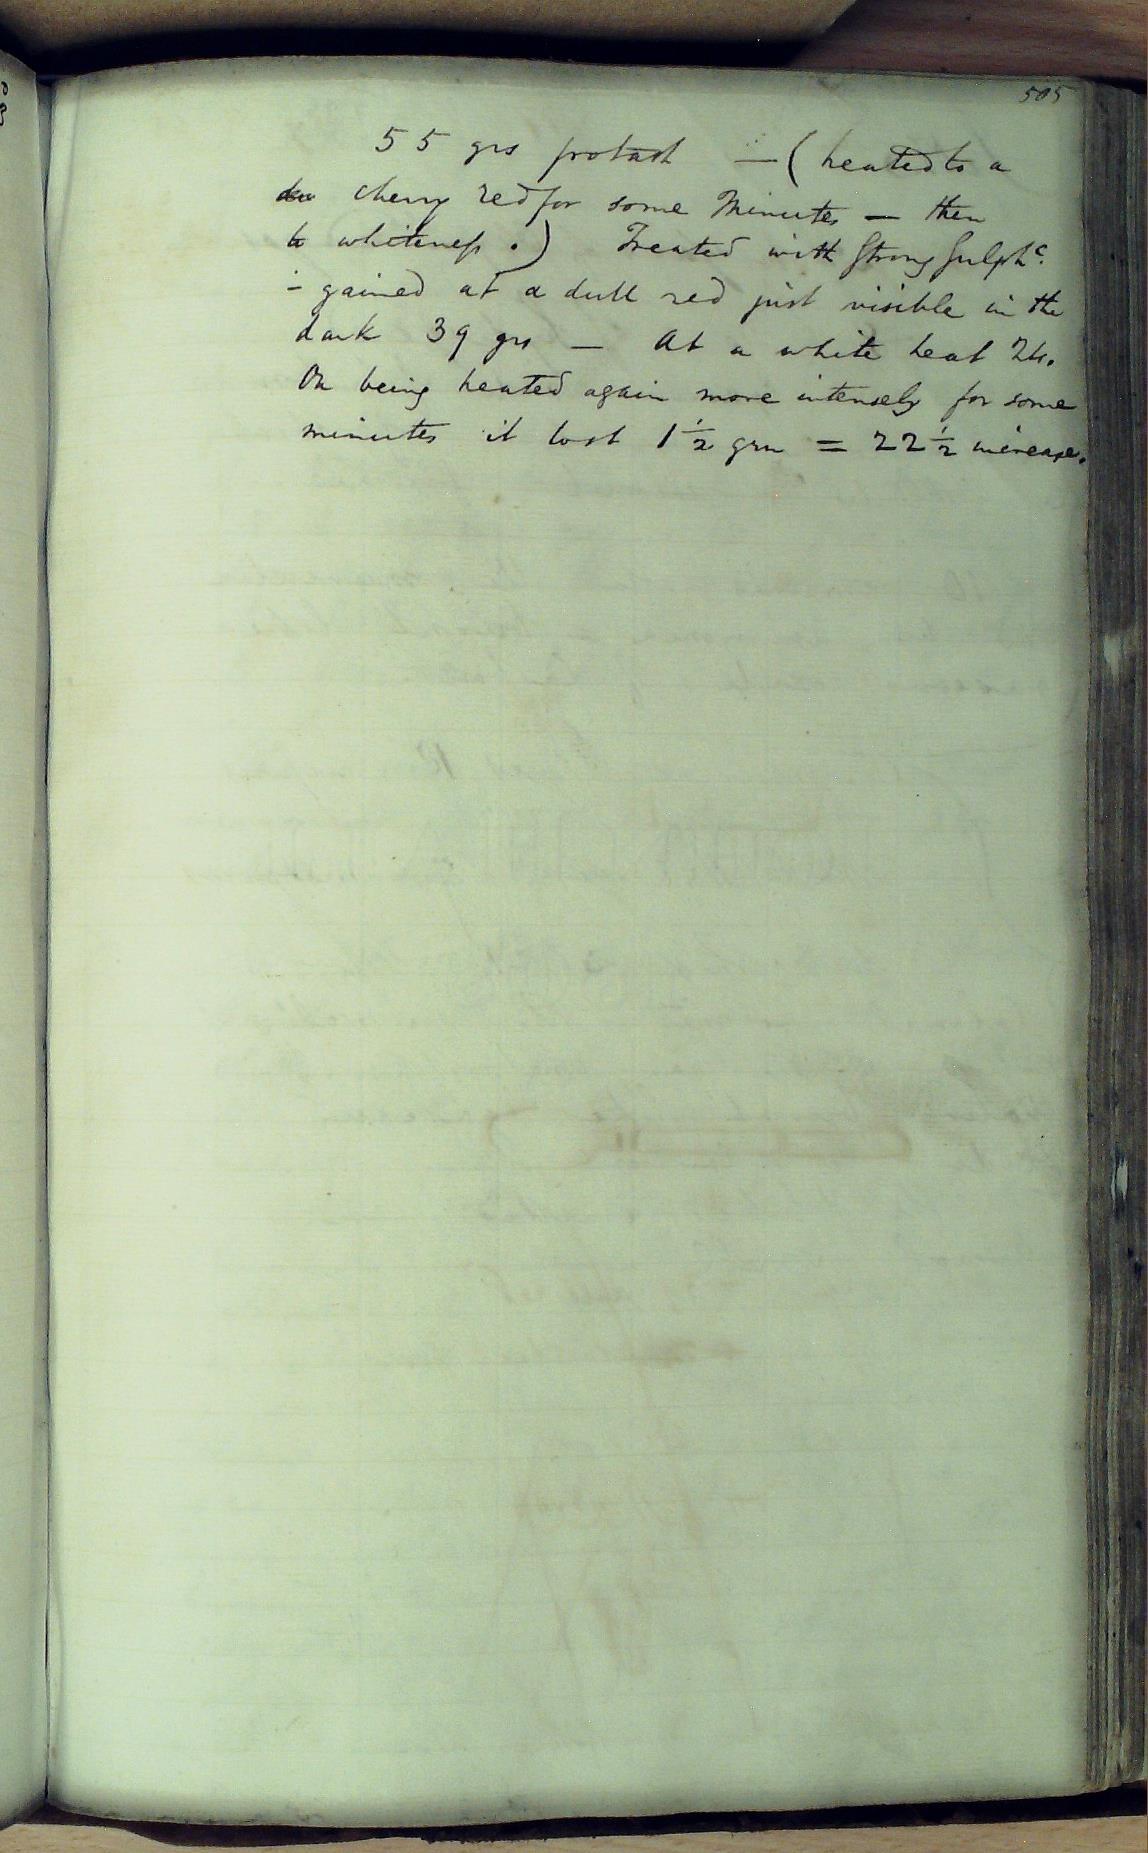 505
55 grs potash — (heated to a
cherry red for some Minutes — then
to whiteness.) Treated with Strong Sulphc.
– gained at a dull red just visible in the
dark 39 grs — At a white heat 24.
On being heated again more intensely for some
minutes it lost 1½ grn = 22½ increase.